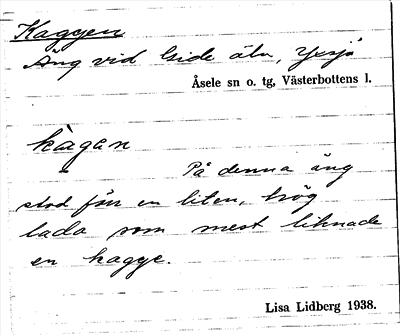 Kaggen
Äng vid Gide älv, Yxsjö
Åsele sn o. tg, Västerbottens l.
kàgan
På denna äng
stod förr en liten, hög
lada som mest liknade
en kagge.
Lisa Lidberg 1938.